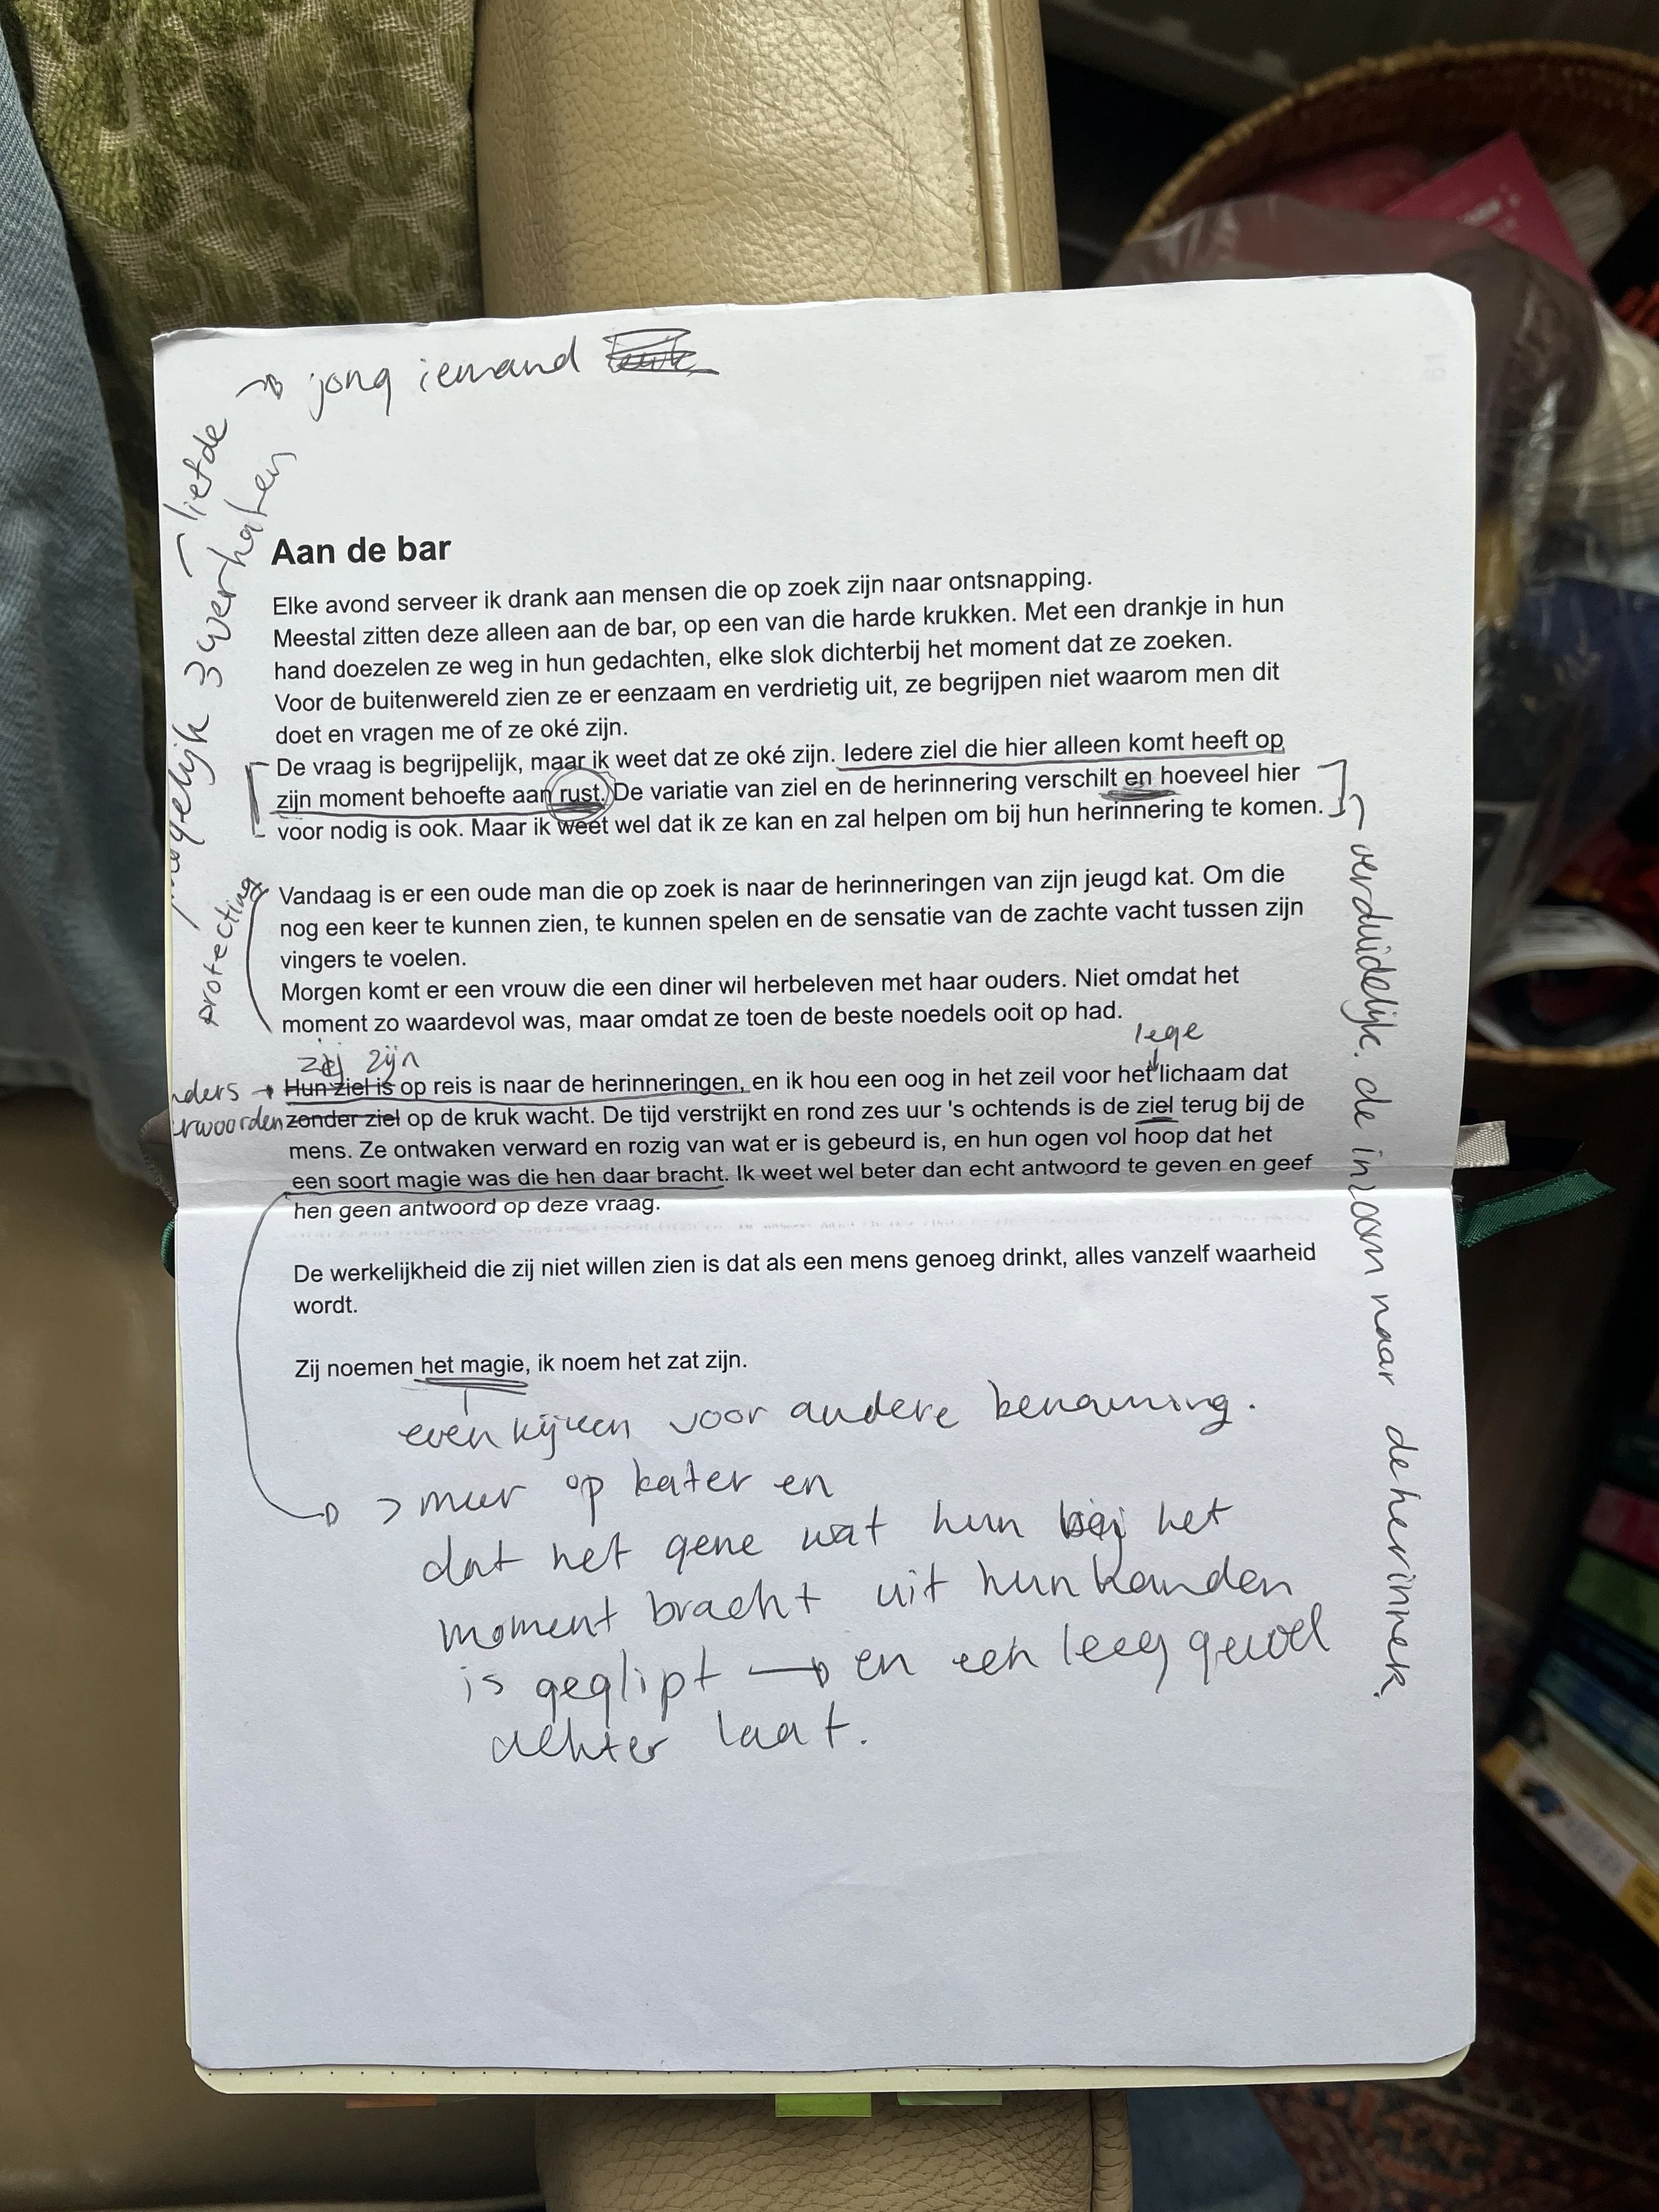 jong iemand
liefde
mogelijk 3 verhalen
Aan de bar
Elke avond serveer ik drank aan mensen die op zoek zijn naar ontsnapping.
Meestal zitten deze alleen aan de bar, op een van die harde krukken. Met een drankje in hun
hand doezelen ze weg in hun gedachten, elke slok dichterbij het moment dat ze zoeken.
Voor de buitenwereld zien ze er eenzaam en verdrietig uit, ze begrijpen niet waarom men dit
doet en vragen me of ze oké zijn.
De vraag is begrijpelijk, maar ik weet dat ze oké zijn. Iedere ziel die hier alleen komt heeft op
zijn moment behoefte aan rust. De variatie van ziel en de herinnering verschilt en hoeveel hier
voor nodig is ook. Maar ik weet wel dat ik ze kan en zal helpen om bij hun herinnering te komen.
verduidelijk. de inzoom naar de herinner.
protecting
Vandaag is er een oude man die op zoek is naar de herinneringen van zijn jeugd kat. Om die
nog een keer te kunnen zien, te kunnen spelen en de sensatie van de zachte vacht tussen zijn
vingers te voelen.
Morgen komt er een vrouw die een diner wil herbeleven met haar ouders. Niet omdat het
moment zo waardevol was, maar omdat ze toen de beste noedels ooit op had.
zij zijn
lege
nders → Hun ziel is op reis is naar de herinneringen, en ik hou een oog in het zeil voor het lichaam dat
rwoorden zonder ziel op de kruk wacht. De tijd verstrijkt en rond zes uur 's ochtends is de ziel terug bij de
mens. Ze ontwaken verward en rozig van wat er is gebeurd is, en hun ogen vol hoop dat het
een soort magie was die hen daar bracht. Ik weet wel beter dan echt antwoord te geven en geef
hen geen antwoord op deze vraag.
De werkelijkheid die zij niet willen zien is dat als een mens genoeg drinkt, alles vanzelf waarheid
wordt.
Zij noemen het magie, ik noem het zat zijn.
even kijken voor andere benaming.
> meer op kater en
dat het gene wat hun bij het
moment bracht uit hun handen
is geglipt → en een leeg gevoel
achter laat.